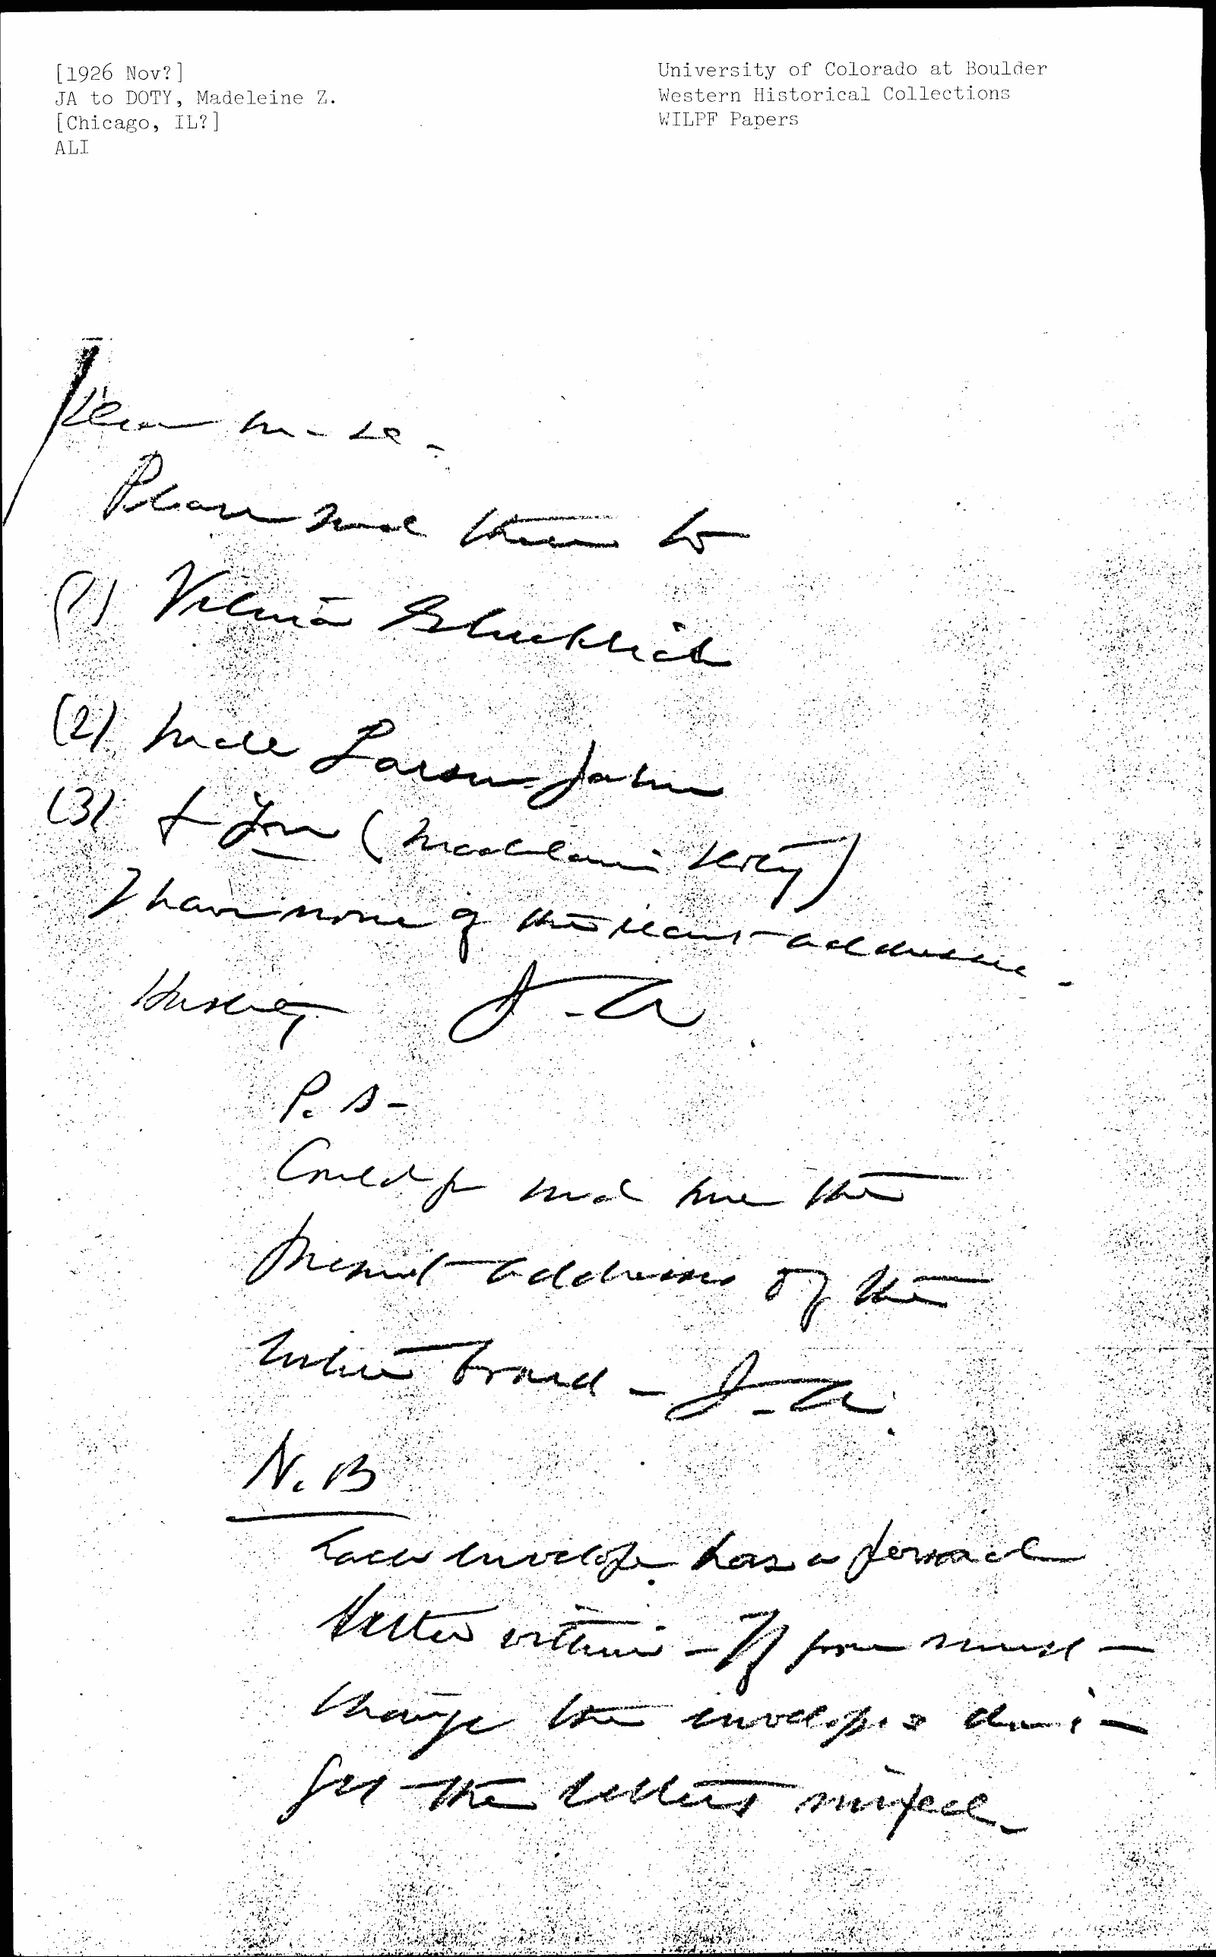 [1926 Nov?]
JA to DOTY, Madeleine Z.
[Chicago, IL?]
ALI
University of Colorado at Boulder
Western Historical Collections
WILPF Papers
Dear
Please send these to
(1) Vilma Glucklich
(2) Larsen Jahn
(3) & You (Madeleine Doty)
I have none of their addresses -
J. A.
P. S -
Could you send me the
present addresses of the
entire board - J. A.
N. B
Each envelope has a personal
letter within - If you must
change the envelopes don't
get the letters mixed -